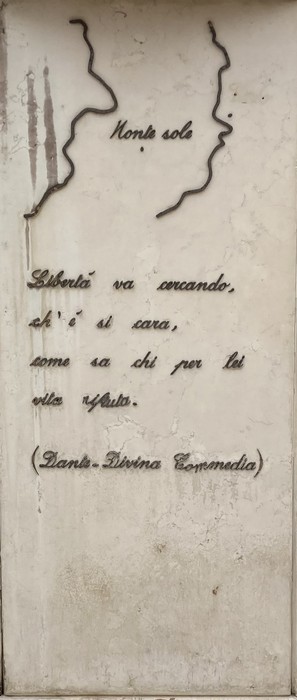 Monte sole
Libertà va cercando,
ch' è si cara,
come sa chi per lei
vita rifiuta.
(Dante-Divina Commedia)